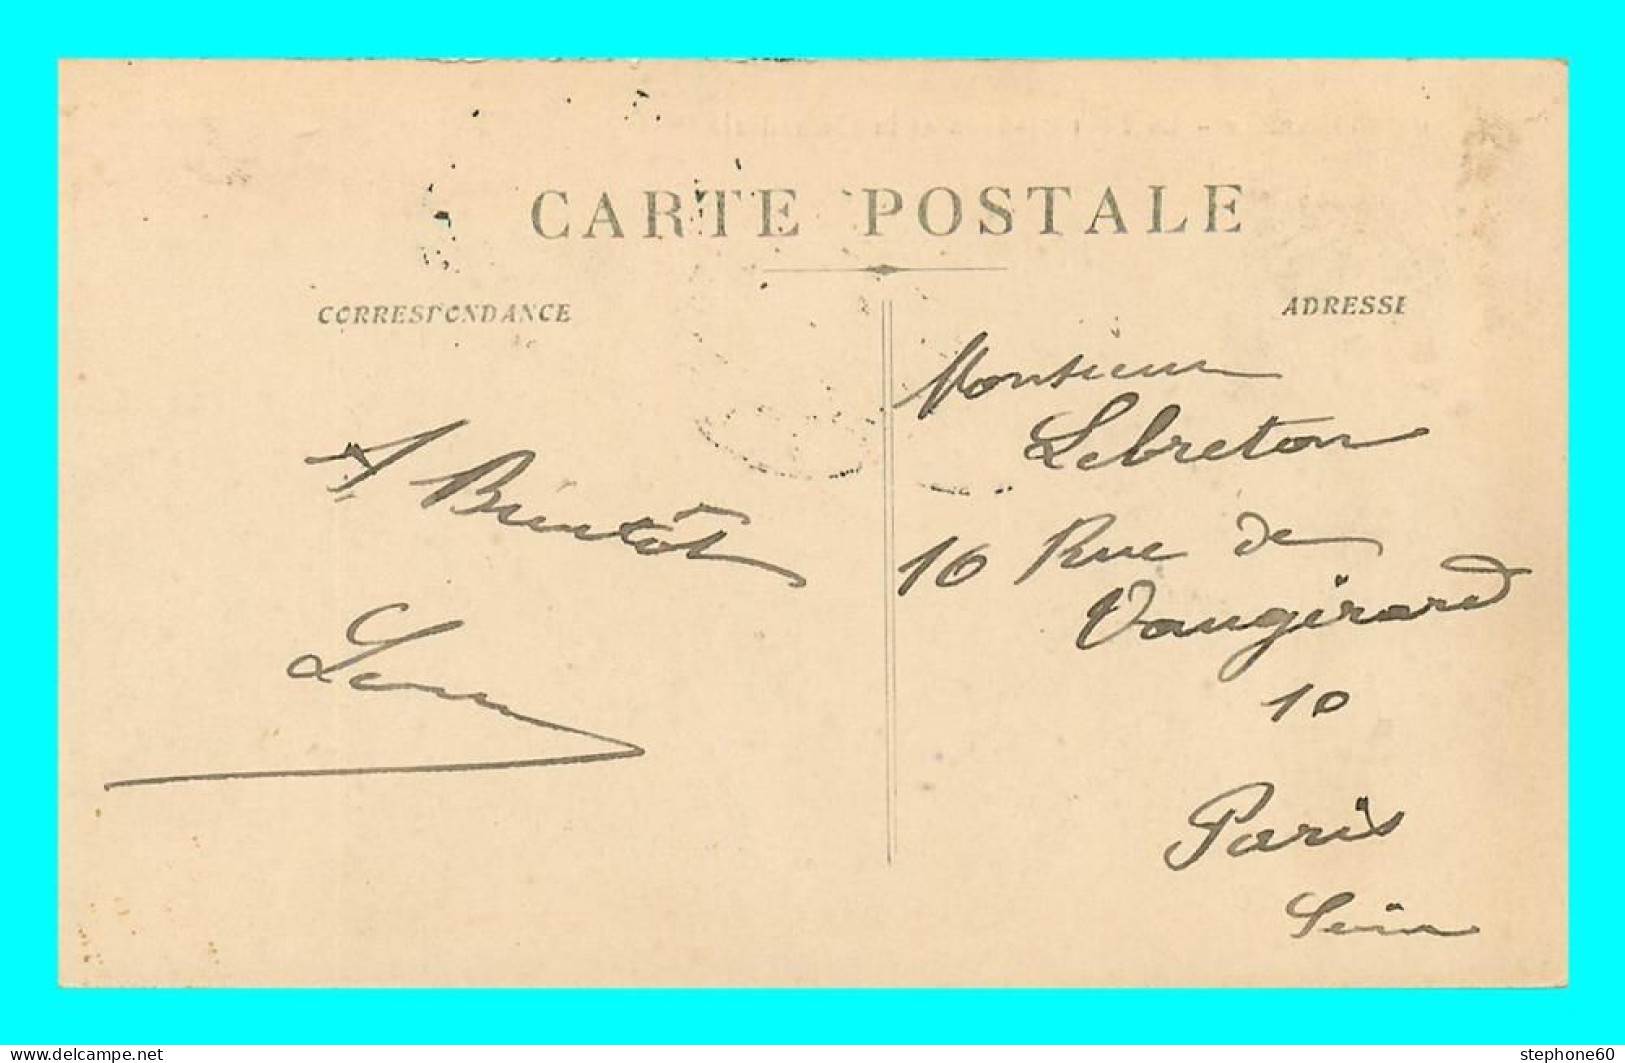 CARTE POSTALE
CORRESPONDANCE
ADRESSE
A Bientôt
Monsieur
Lebreton
16 Rue de
Vaugirard
10
Paris
Seine
delcampe.net
stephone60